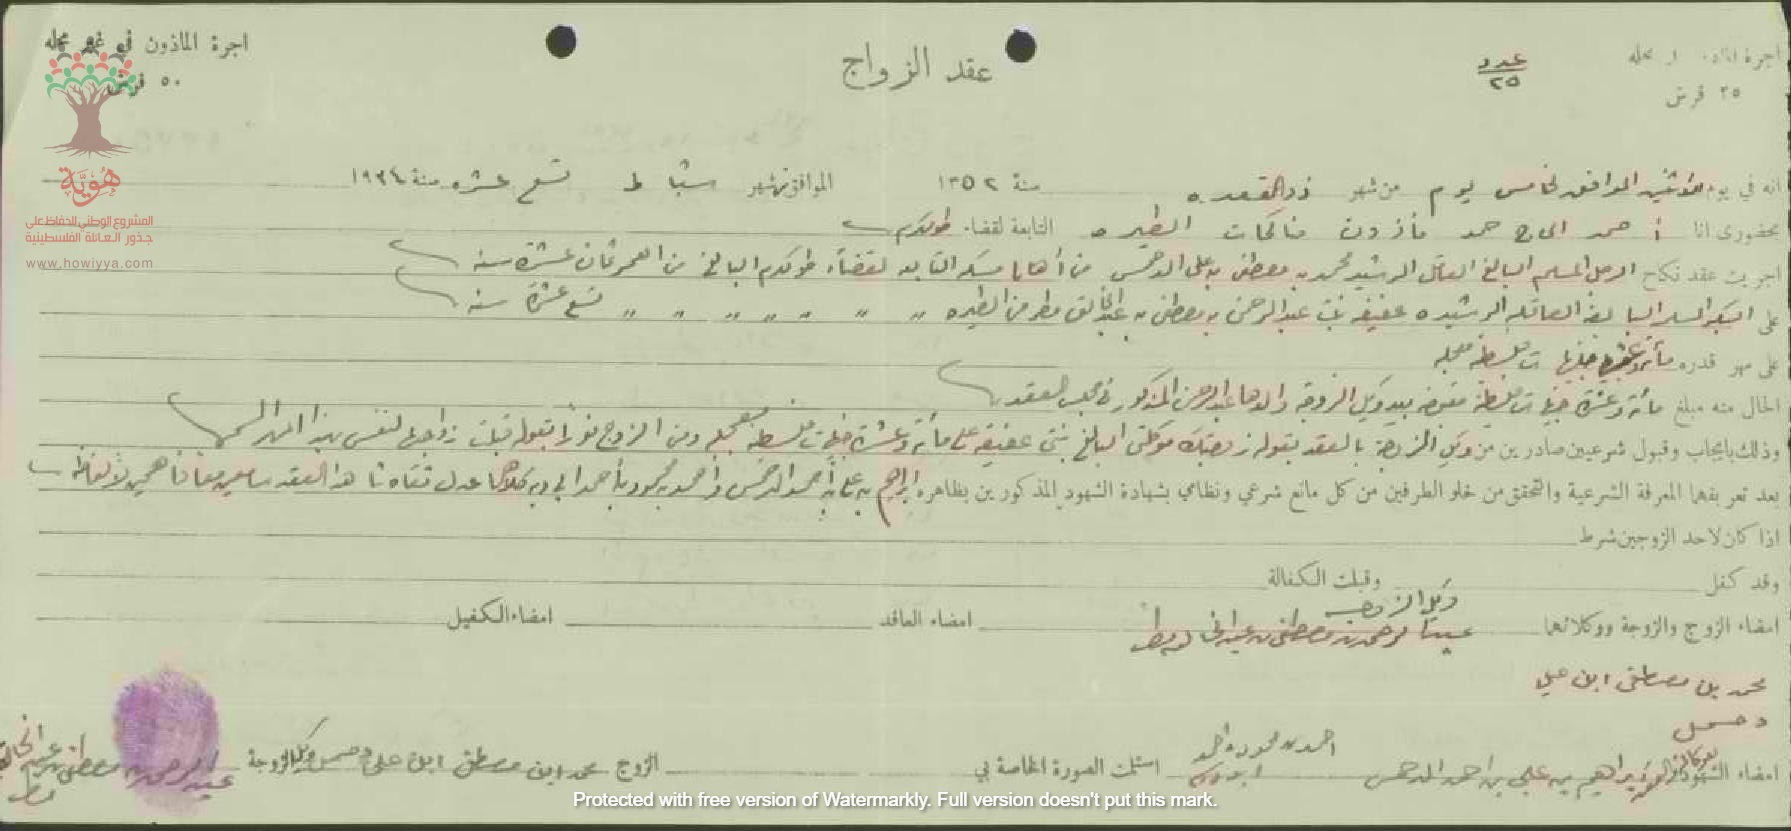 اجرة المأذون في محله
٢٥ قرش
عدد
٢٥
عقد الزواج
اجرة المأذون في غير محله
٥٠ قرش
هُوِيَّة
المشروع الوطني للحفاظ على
جذور العائلة الفلسطينية
www.howiyya.com
انه في يوم الاثنين الموافق لخامس يوم من شهر ذو القعده سنة ١٣٥٢ الموافق لشهر شباط تسع عشره سنة ١٩٣٤
بحضوري انا احمد الحاج حمد مأذون مناكحات الطيره التابعة لقضاء طولكرم
اجريت عقد نكاح الرجل المسلم البالغ العاقل الرشيد محمد بن مصطفى بن علي الدحمس من أهالي مسكه التابعه لقضاء طولكرم البالغ من العمر ثمان عشرة سنه
على البكر المسلمه البالغه العاقله الرشيده عفيفه بنت عبد الرحمن بن مصطفى بن عبد الخالق مطر من الطيره " " " " " " " تسع عشرة سنه
على مهر قدره مأة وعشرة جنيهات فلسطينية معجله
الحال منه مبلغ مأة وعشرة جنيهات فلسطينية مقبوضه بيد وكيل الزوجه والدها عبد الرحمن المذكور في مجلس العقد
وذلك بايجاب وقبول شرعيين صادرين من وكيل الزوجة بالعقد بقوله زوجتك موكلتي البالغ بنتي عفيفه على مأة وعشرة جنيهات فلسطينية معجله ومن الزوج فورًا بقوله قبلت زواجها لنفسي بهذا المهر المسمى
بعد تعريفهما المعرفة الشرعية والتحقق من خلو الطرفين من كل مانع شرعي ونظامي بشهادة الشهود المذكورين بظاهره ابراهيم بن علي بن احمد الدحمس واحمد بن محمود بن احمد كلاهما عدل شاهدا العقد سامعين معًا فاهمين لألفاظه
اذا كان لاحد الزوجين شرط
وقد كفل وقبلت الكفالة
امضاء الزوج والزوجة ووكلائهما
وكيل الزوجه
عبد الرحمن بن مصطفى بن عبد الخالق مطر
امضاء العاقد امضاء الكفيل
محمد بن مصطفى ابن علي
دحمس
امضاء الشهود ابراهيم بن علي بن احمد الدحمس
احمد بن محمود بن احمد
استلمت الصورة الخاصة بي الزوج محمد ابن مصطفى ابن علي دحمس وكيل الزوجة عبد الرحمن بن مصطفى بن عبد الخالق
مطر
Protected with free version of Watermarkly. Full version doesn't put this mark.